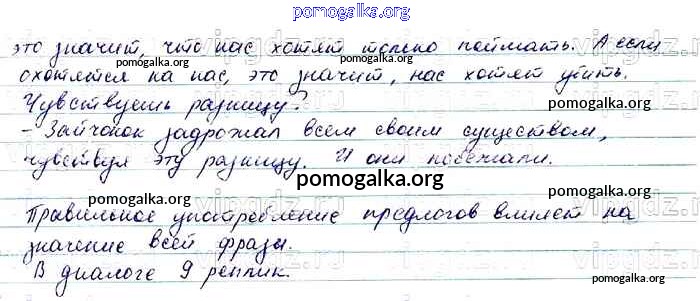 pomogalka.org
это значит, что нас хотят только поймать. А если
охотятся на нас, это значит, нас хотят убить.
Чувствуешь разницу?
pomogalka.org
- Зайчонок задрожал всем своим существом,
чувствуя эту разницу. И они побежали.
pomogalka.org
pomogalka.org
Правильное употребление предлогов влияет на
значение всей фразы.
В диалоге 9 реплик.
pomogalka.org